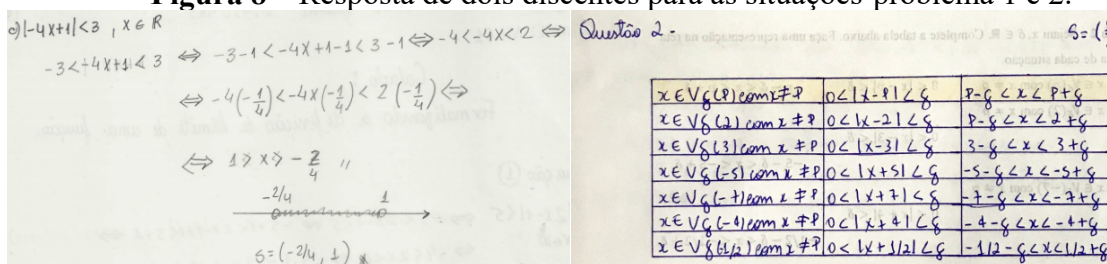 Figura 6 – Resposta de dois discentes para as situações-problema 1 e 2.
c) |-4x+1|<3 , x ∈ R
-3<-4x+1<3 ⇔ -3-1<-4x+1-1<3-1 ⇔ -4<-4x<2 ⇔
⇔ -4(-1/4)<-4x(-1/4)<2(-1/4) ⇔
⇔ 1>x>-2/4 //
-2/4 1
S=(-2/4, 1)
Questão 2-
S=(
x ∈ Vδ(P) com x≠P 0<|x-P|<δ P-δ<x<P+δ
x ∈ Vδ(2) com x≠P 0<|x-2|<δ P-δ<x<2+δ
x ∈ Vδ(3) com x≠P 0<|x-3|<δ 3-δ<x<3+δ
x ∈ Vδ(-5) com x≠P 0<|x+5|<δ -5-δ<x<-5+δ
x ∈ Vδ(-7) com x≠P 0<|x+7|<δ -7-δ<x<-7+δ
x ∈ Vδ(-1) com x≠P 0<|x+1|<δ -1-δ<x<-1+δ
x ∈ Vδ(1/2) com x≠P 0<|x+1/2|<δ -1/2-δ<x<1/2+δ